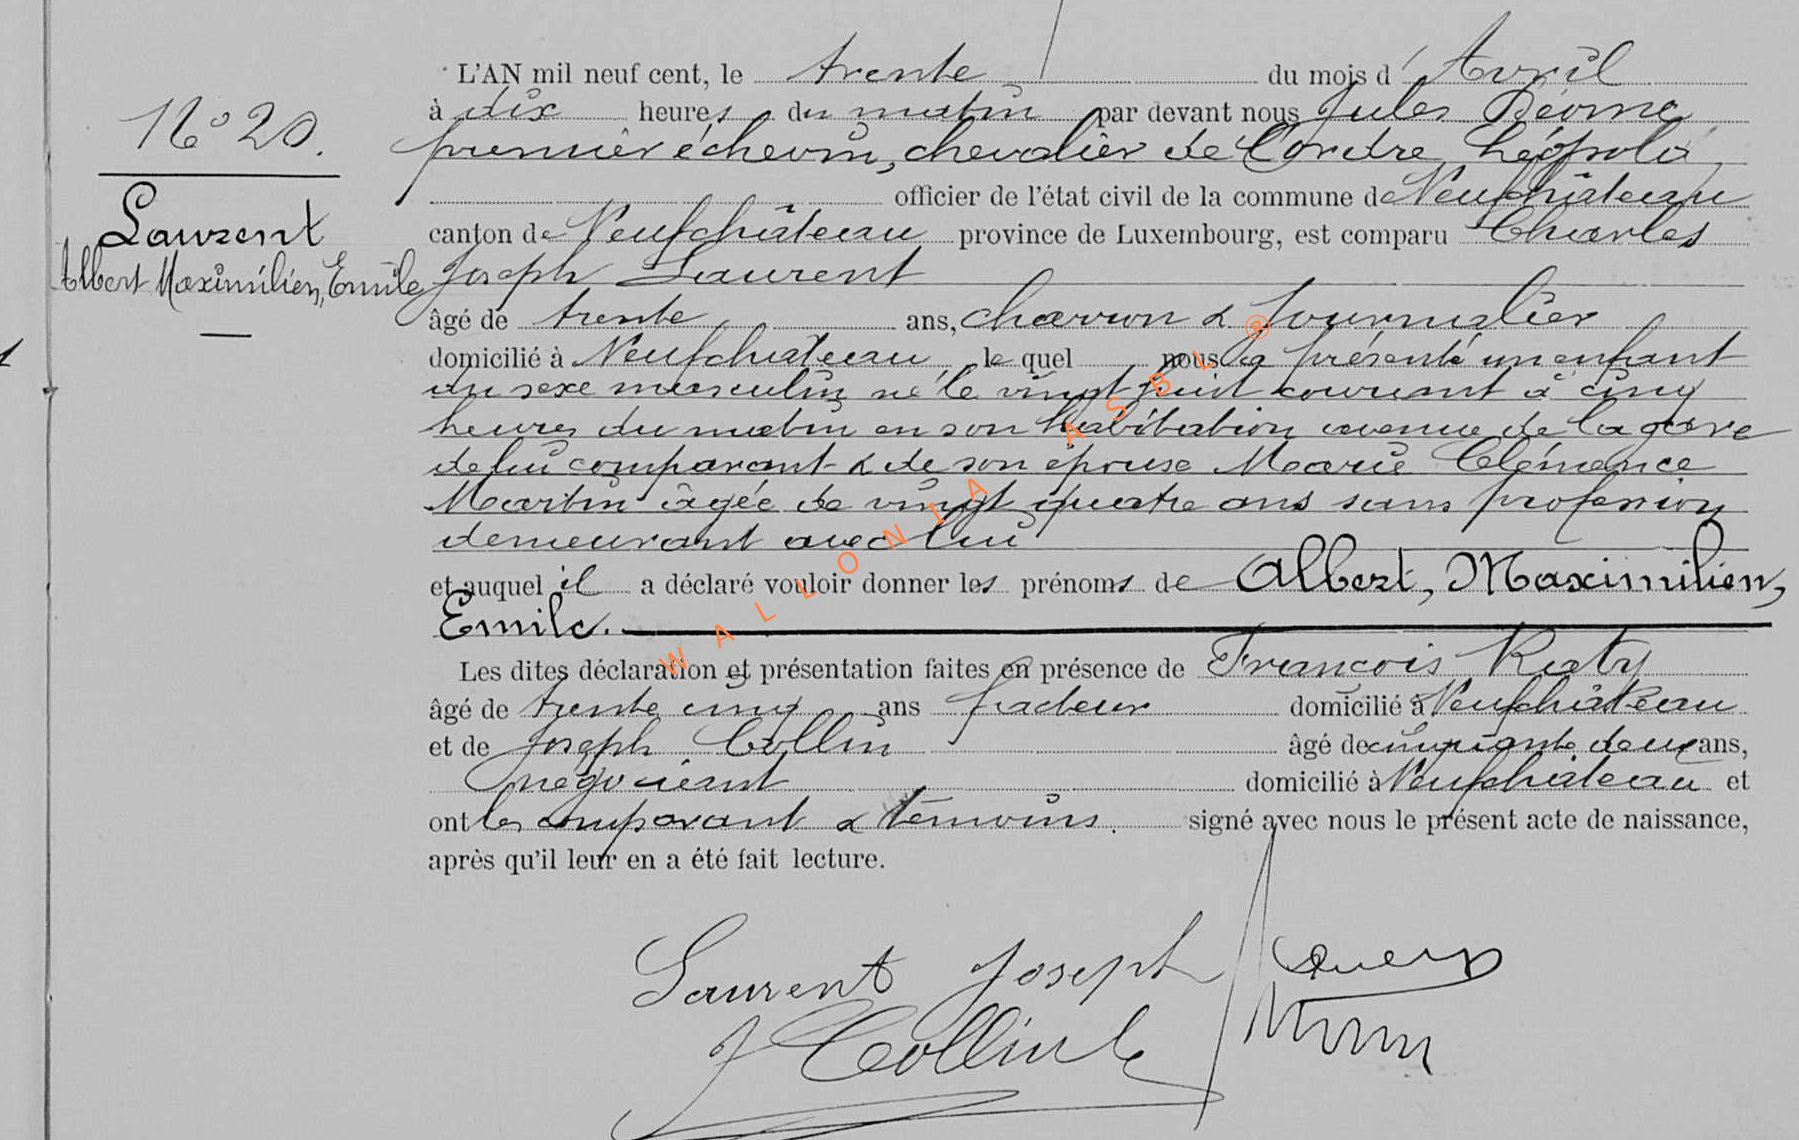 L'AN mil neuf cent, le trente du mois d'Avril
N° 20.
à dix heures du matin par devant nous Jules
premier échevin, chevalier de l'ordre Léopold,
officier de l'état civil de la commune de Neufchâteau
Laurent
Albert Maximilien, Emile
canton de Neufchâteau province de Luxembourg, est comparu Charles
Joseph Laurent
âgé de trente ans, charron & Journalier
domicilié à Neufchateau, le quel nous a présenté un enfant
du sexe masculin né le vingt huit courant à cinq
heures du matin en son habitation avenue de la gare
de lui comparant & de son épouse Marie Clémence
Martin âgée de vingt quatre ans sans profession
demeurant avec lui
et auquel il a déclaré vouloir donner les prénoms de Albert, Maximilien,
Emile.
Les dites déclaration et présentation faites en présence de François
âgé de trente cinq ans facteur domicilié à Neufchâteau
et de Joseph Collin âgé de cinquante deux ans,
négociant domicilié à Neufchâteau et
ont les comparant & témoins. signé avec nous le présent acte de naissance,
après qu'il leur en a été fait lecture.
Laurent Joseph
J Collin
WALLONIA ASBL ®